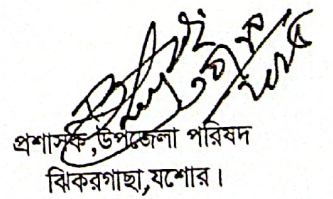 প্রশাসক,উপজেলা পরিষদ
ঝিকরগাছা,যশোর।